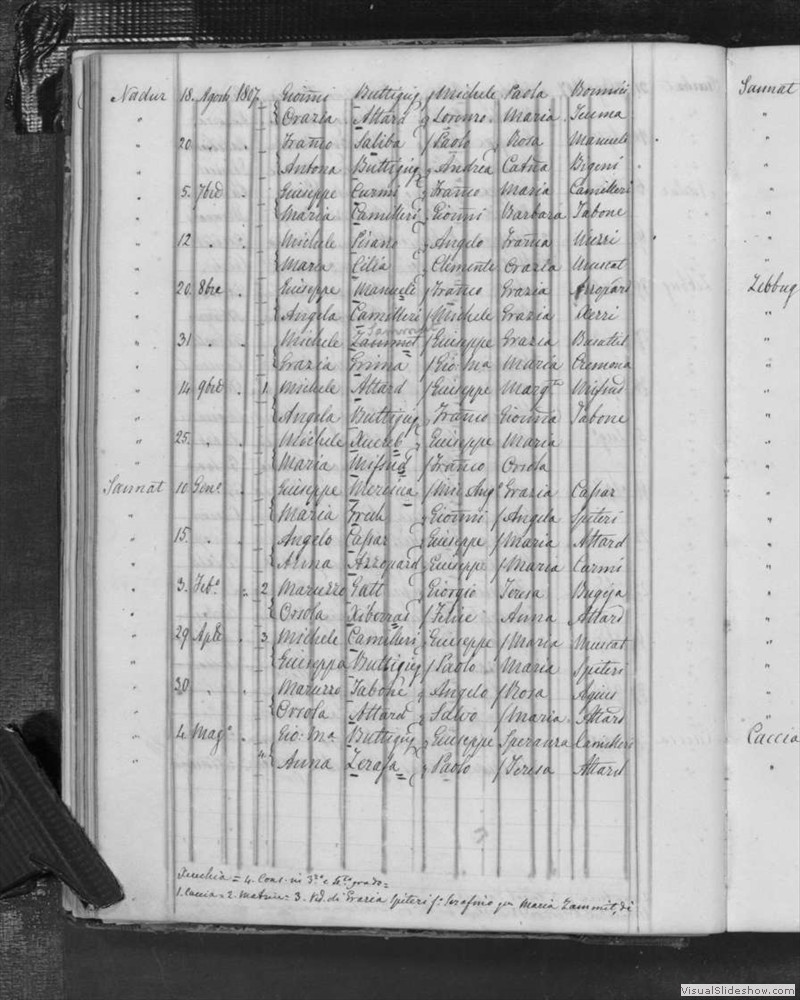 Nadur 18. Agosto 1807. Gioñni Buttigieg Michele Paola
" Orazia Attard Lorenzo Maria
" 20 " . Franco Saliba Paolo Rosa Manueli
" Antona Buttigieg Andrea Catña
" 5. 7bre . Giuseppe Curmi Franco Maria Camilleri
" Maria Camilleri Gioñni Barbara Tabone
" 12 . . Michele Pisano Angelo Frañca
" Maria Cilia Clemente Orazia Muscat
" 20. 8bre . Giuseppe Manueli Franco Grazia Azzopard
" Angela Camilleri Michele Grazia Xerri
" 31 . . Michele Zammit Giuseppe Grazia Busuttil
" Grazia Grima Gio:Ma Maria Cremona
" 14 9bre . 1. Michele Attard Giuseppe Margta Mifsud
" Angela Buttigieg Franco Gioñna Tabone
" 25. . . Michele Xuereb Giuseppe Maria
" Maria Mifsud Franco Orsola
Sannat 10 Gen.o . Giuseppe Mercieca Grazia Capar
" Maria Frech Gioñni Angela Spiteri
" 15. . . Angelo Capar Giuseppe Maria Attard
" Anna Azzopard Giuseppe Maria Curmi
" 3. Feb.o . 2 Maruzzo Gatt Giorgio Teresa Bugeja
" Orsola Xiberras Felice Anna Attard
" 29 Aple . 3. Michele Camilleri Giuseppe Maria Muscat
" Giuseppa Buttigieg Paolo Maria Spiteri
" 30 . . Maruzzo Tabone Angelo Rosa Agius
" Orsola Attard Salvo Maria Attard
" 4 Mag.o . Gio:Ma Buttigieg Giuseppe Speranza Camilleri
" 4. Anna Zerafa Paolo Teresa Attard
Xeuchia = 4. Cons. in 3.o e 4.to grado =
1. Caccia = 2. Matrice = 3. Ved. di Grazia Spiteri f. Serafino e Maria Zammit, di
Sannat
Zebbug
Caccia
VisualSlideshow.com